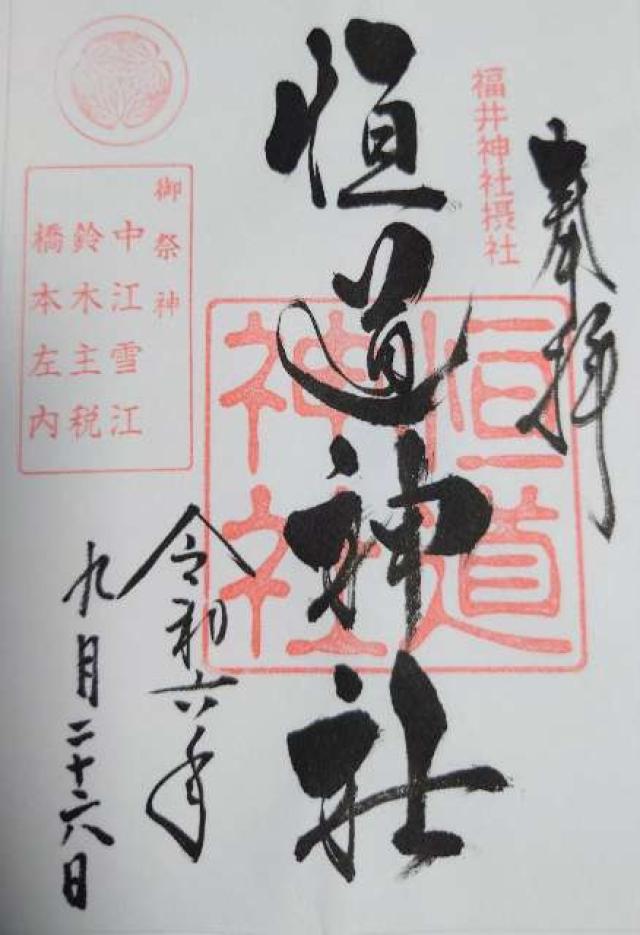 奉拝
福井神社摂社
恒道神社
恒道
神社
御祭神
中江雪江
鈴木主税
橋本左内
令和六年
九月二十六日